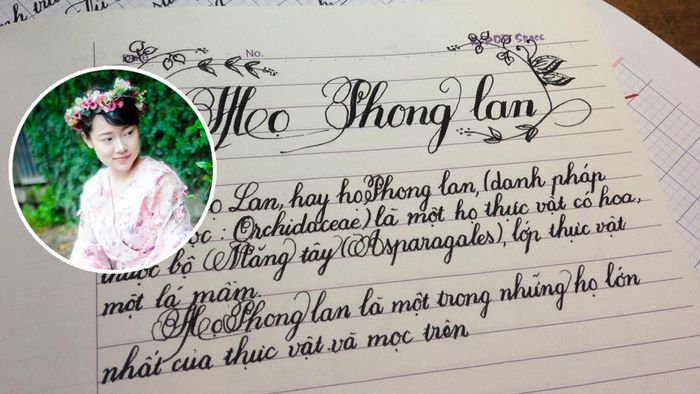 No.
Họ Phong lan
Lan, hay họ Phong lan, (danh pháp
: Orchidaceae) là một họ thực vật có hoa,
thuộc bộ Măng tây (Asparagales), lớp thực vật
một lá mầm.
Họ Phong lan là một trong những họ lớn
nhất của thực vật và mọc trên